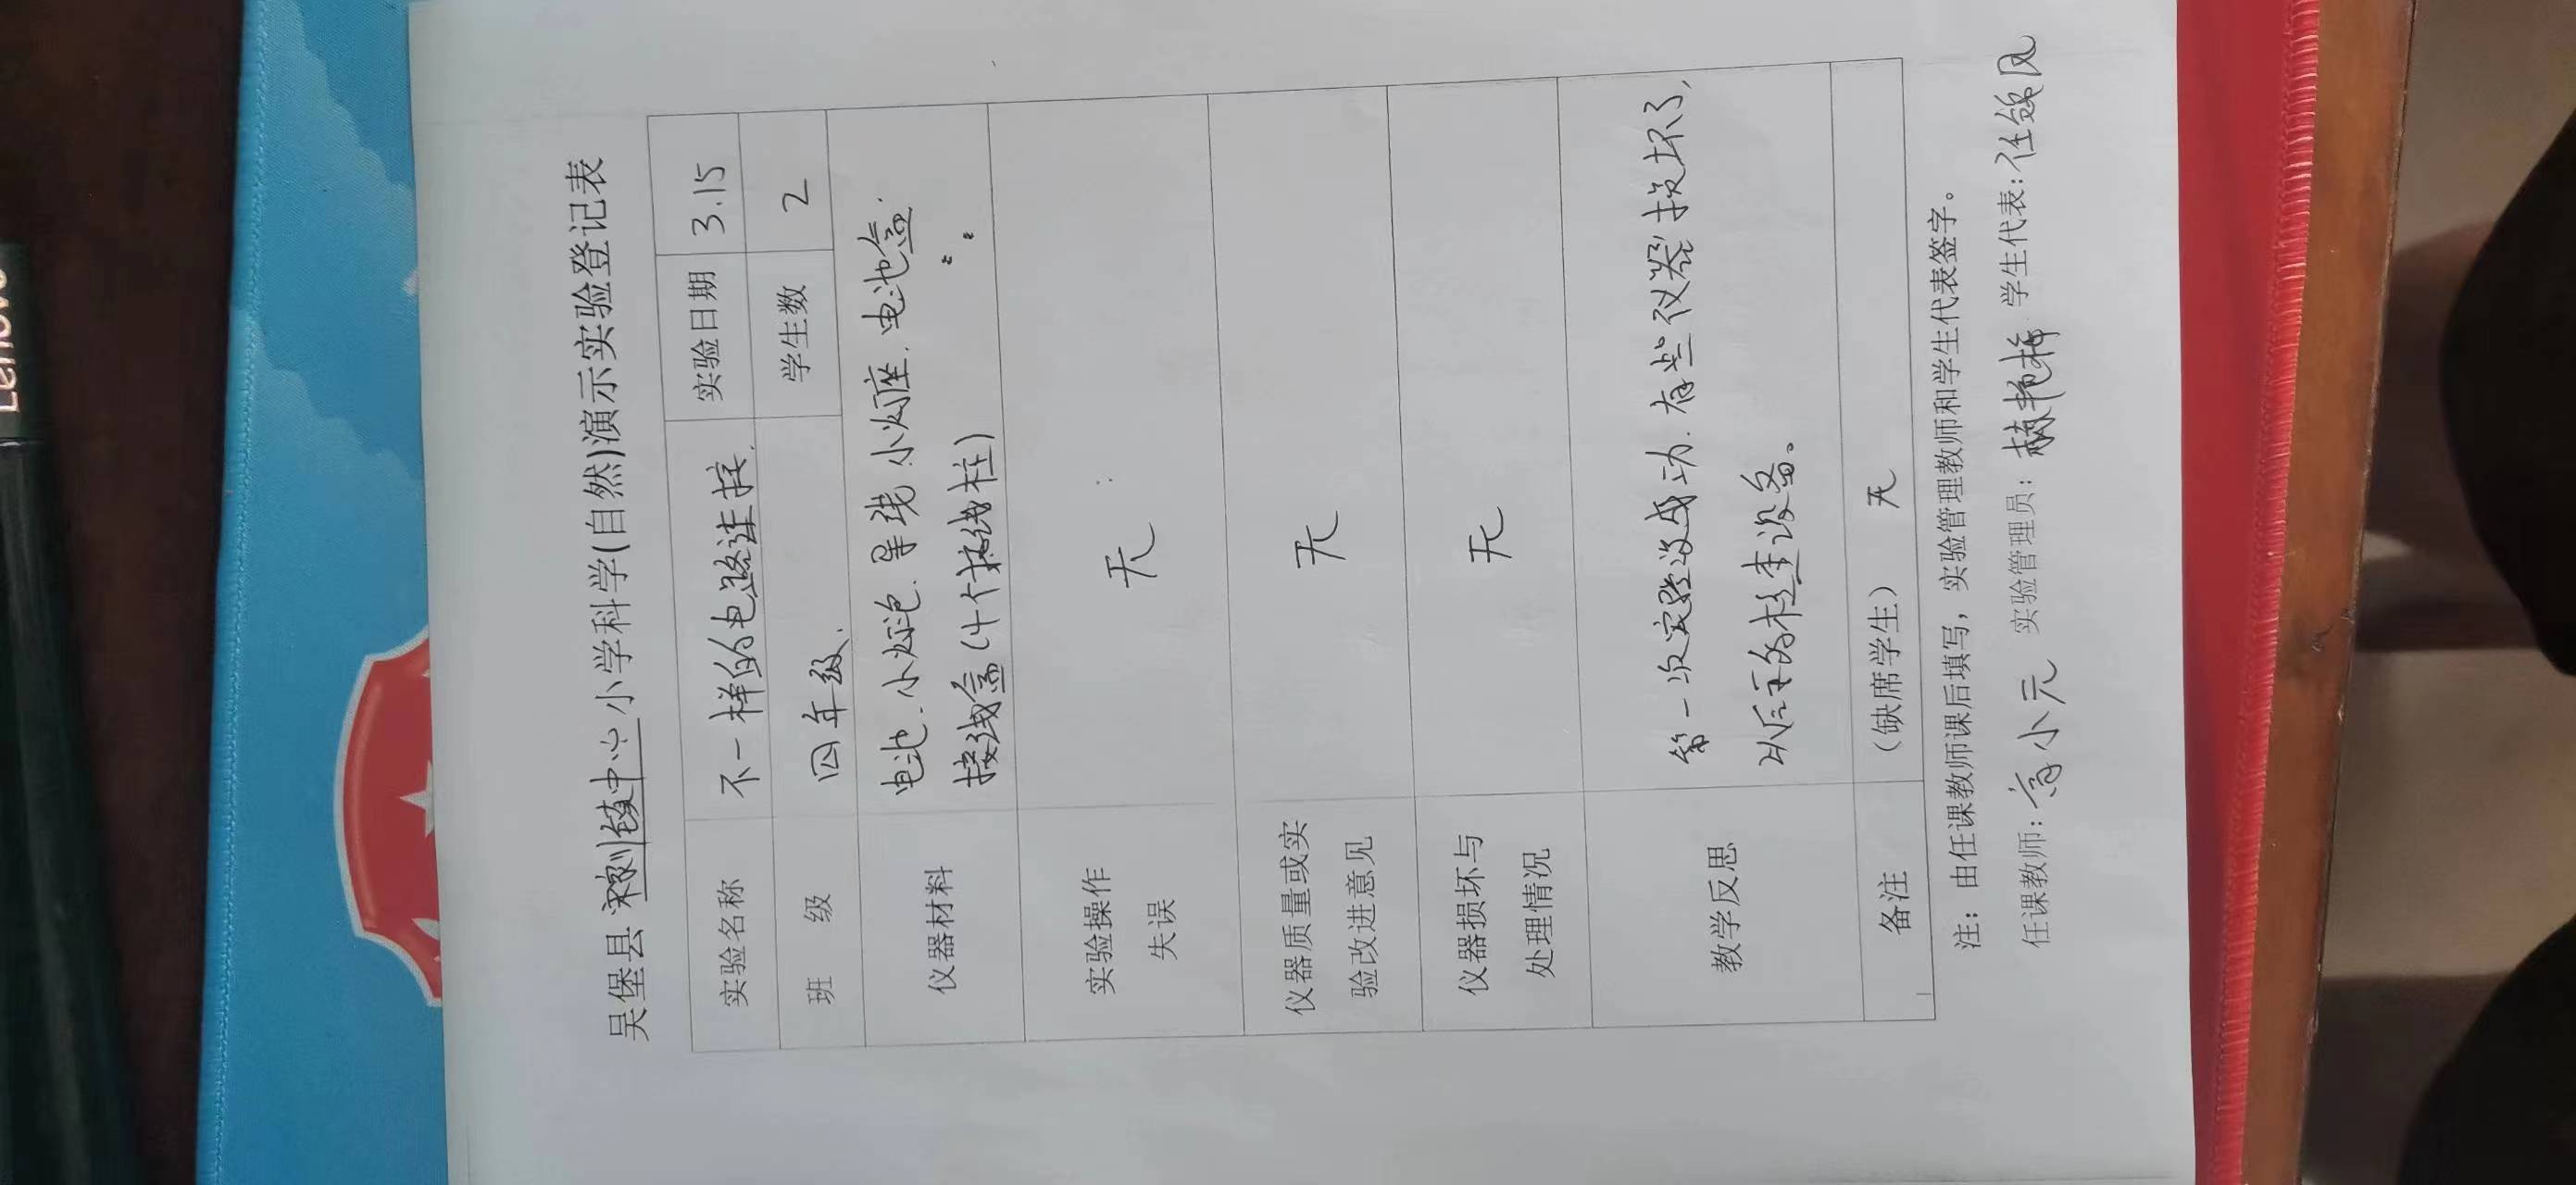 Lenovo
吴堡县 寇家塬镇中心 小学科学(自然)演示实验登记表
实验名称 不一样的电路连接. 实验日期 3.15
班 级 四年级. 学生数 2
仪器材料 电池.小灯泡.导线.小灯座.电池盒.
接线盒(4个接线柱)
实验操作
失误 无
仪器质量或实
验改进意见 无
仪器损坏与
处理情况 无
教学反思 第一次实验没成功.有些仪器损坏了,
以后要检查设备。
备注 (缺席学生) 无
注: 由任课教师课后填写, 实验管理教师和学生代表签字。
任课教师: 高小元 实验管理员: 学生代表: